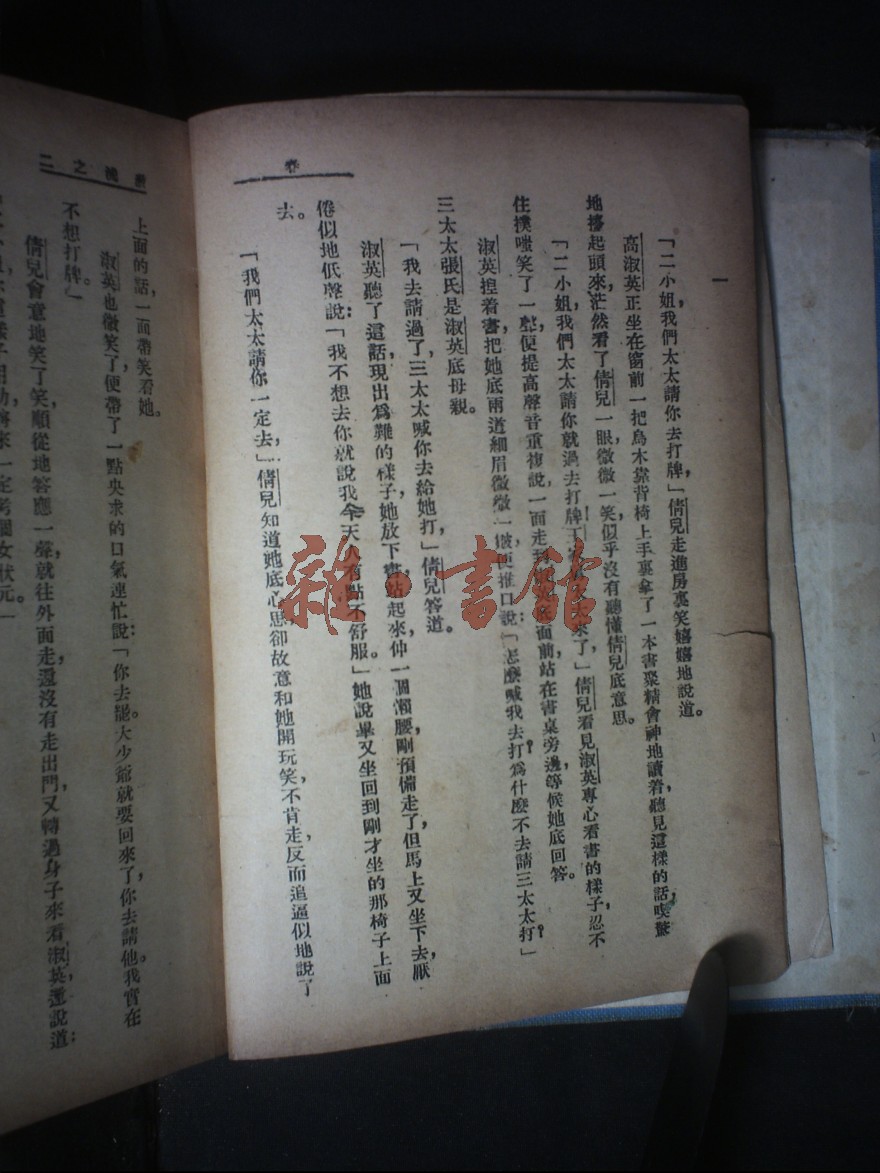 春
一
「二小姐，我們太太請你去打牌，」倩兒走進房裏笑嘻嘻地說道。
高淑英正坐在窗前一把烏木靠背椅上手裏拿了一本書聚精會神地讀着，聽見這樣的話喫驚
地擡起頭來，茫然看了倩兒一眼，微微一笑似乎沒有聽懂倩兒底意思。
「二小姐，我們太太請你就過去打牌，王家 太太來了，」倩兒看見淑英專心看書的樣子，忍不
住撲嗤笑了一聲，便提高聲音重複說，一面走到淑英底面前站在書桌旁邊，等候她底回答。
淑英捏着書，把她底兩道細眉微微一皺便推口說：「怎麼喊我去打？爲什麼不去請三太太打？」
三太太張氏是淑英底母親。
「我去請過了，三太太喊你去給她打，」倩兒答道。
淑英聽了這話，現出爲難的樣子，她放下書站起來，伸一個懶腰，剛預備走了，但馬上又坐下去，厭
倦似地低聲說：「我不想去，你就說我今天人有點不舒服。」她說畢又坐回到剛才坐的那椅子上面
去。
「我們太太請你一定去，」倩兒知道她底心思，卻故意和她開玩笑，不肯走，反而追逼似地說了
激流之二
上面的話，一面帶笑看她。
淑英也微笑了，便帶了一點央求的口氣連忙說：「你去罷。大少爺就要回來了，你去請他。我實在
不想打牌。」
倩兒會意地笑了笑，順從地答應一聲，就往外面走，還沒有走出門，又轉過身子來看淑英，還說道：
用功，將來一定考個女狀元。」
雜·書館